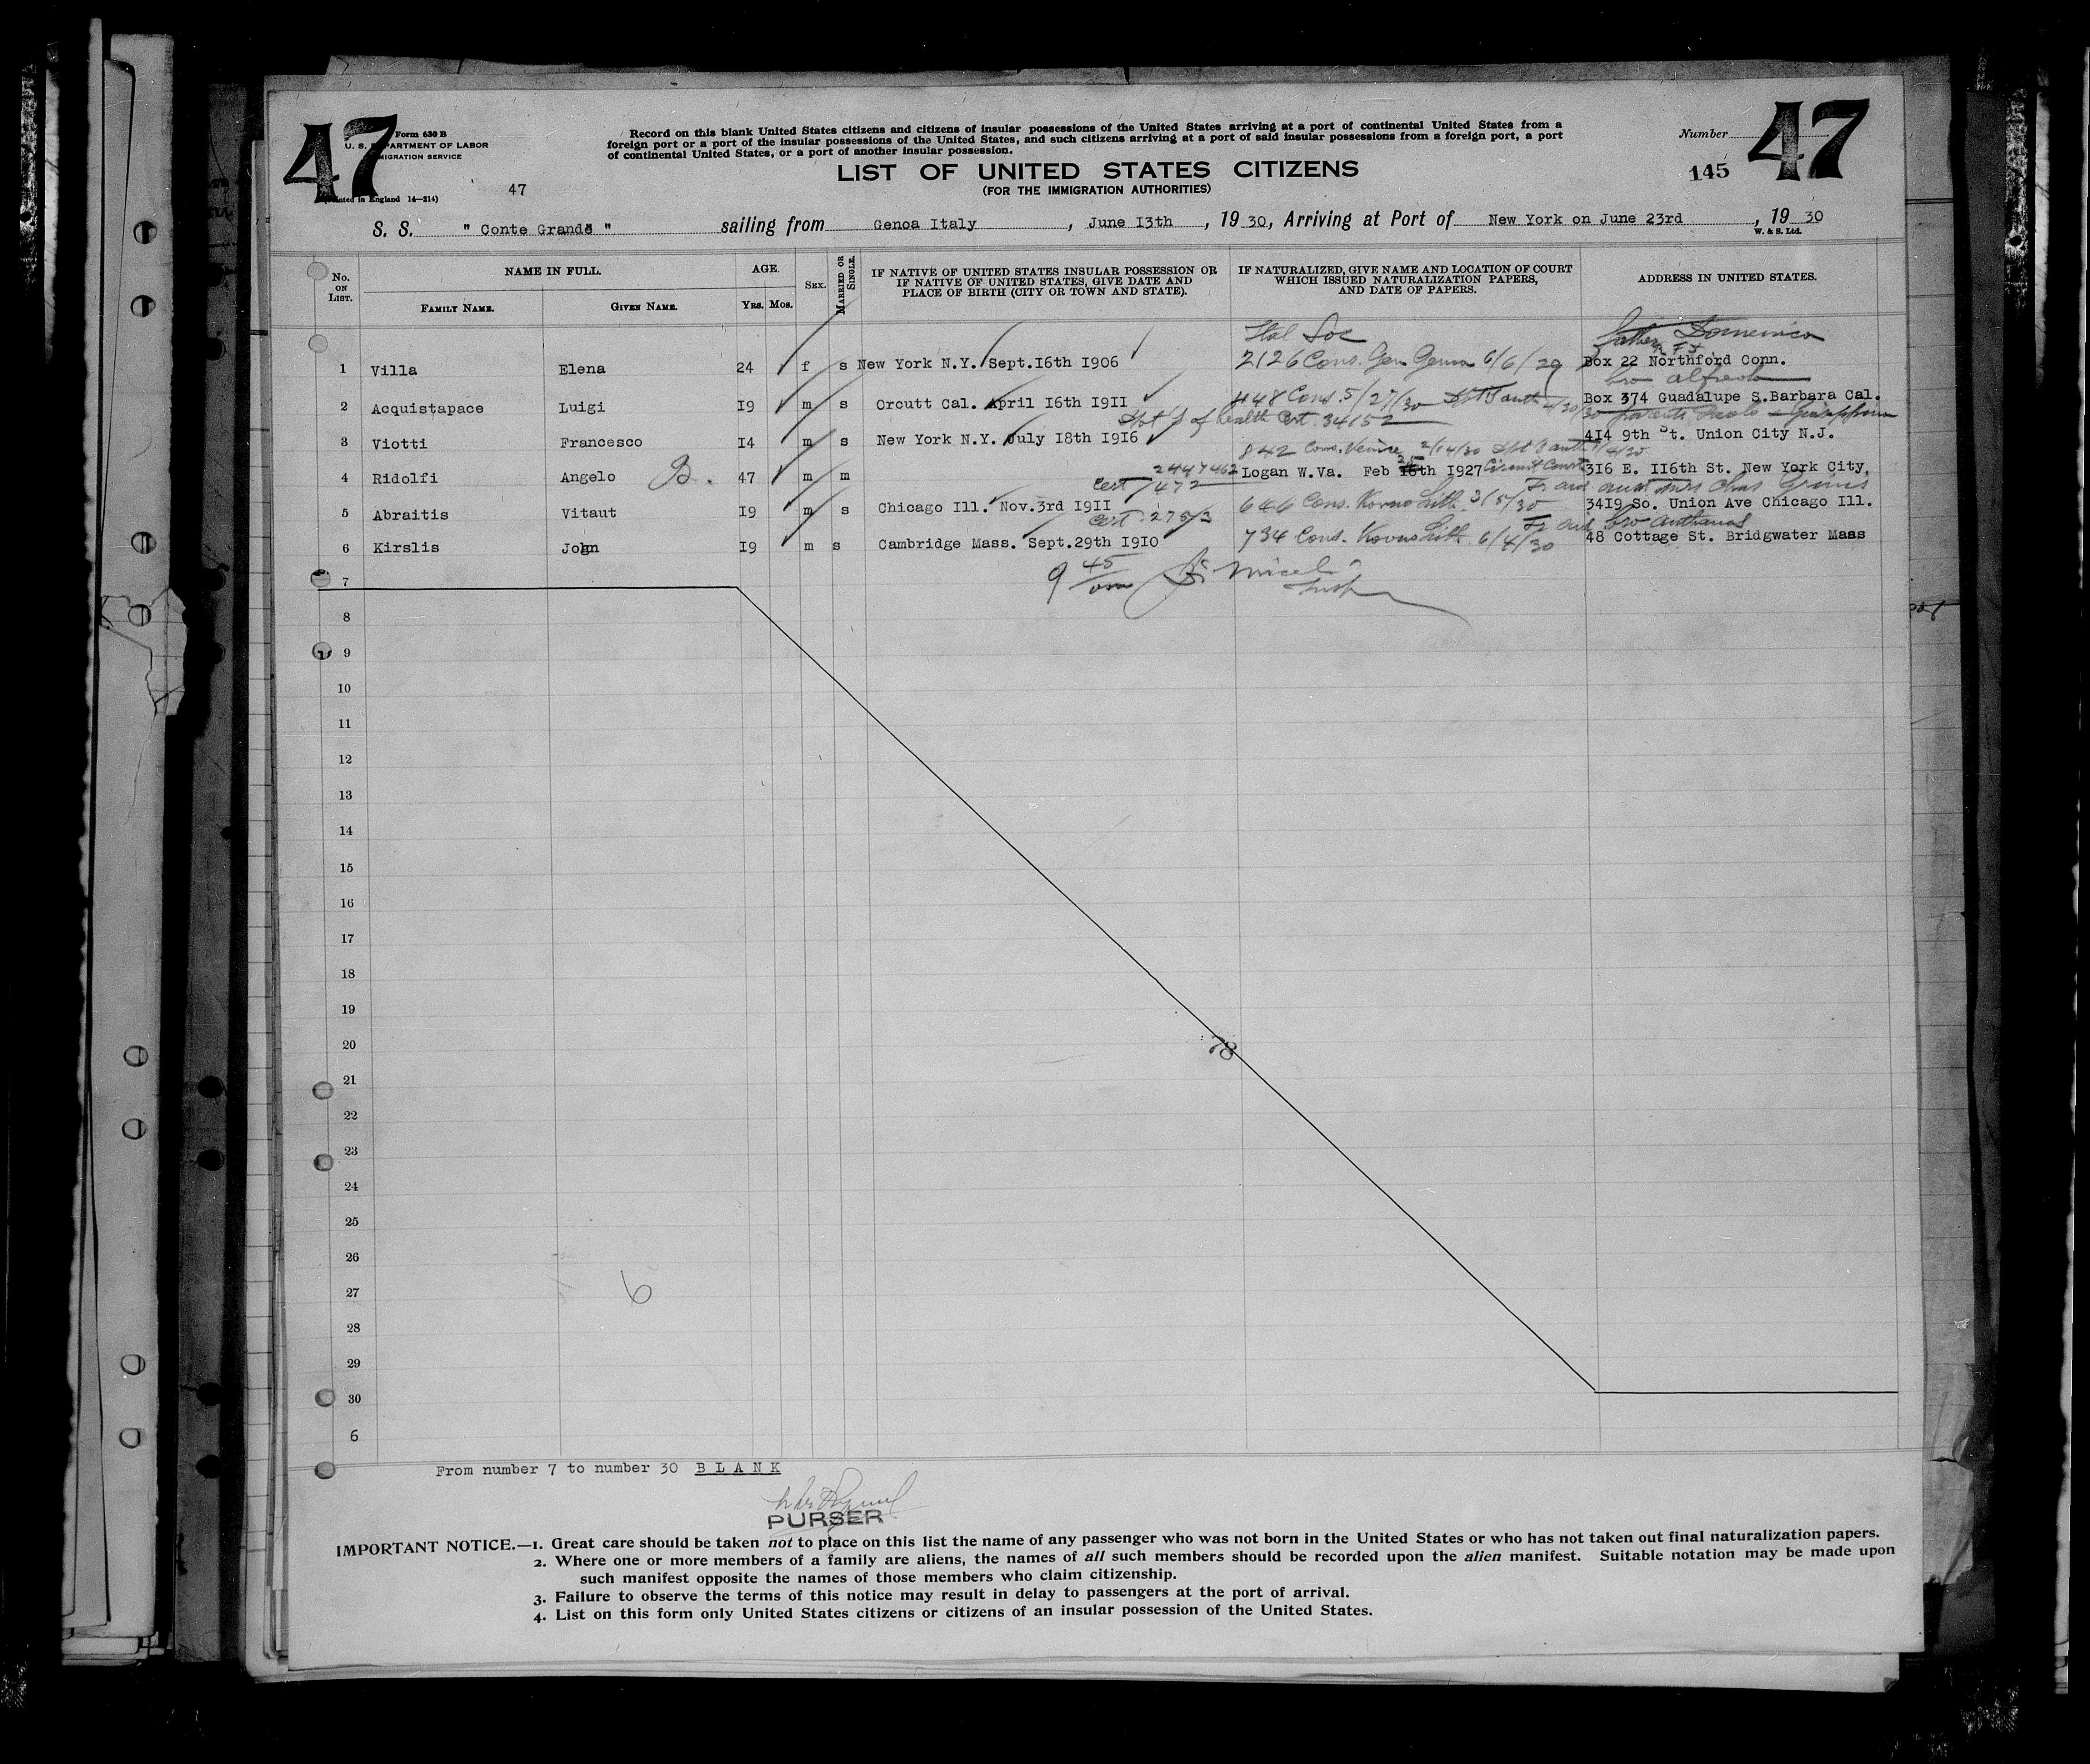 47
Form 630 B
U. S. DEPARTMENT OF LABOR
IMMIGRATION SERVICE
(Printed in England 14—214)
47
Record on this blank United States citizens and citizens of insular possessions of the United States arriving at a port of continental United States from a
foreign port or a port of the insular possessions of the United States, and such citizens arriving at a port of said insular possessions from a foreign port, a port
of continental United States, or a port of another insular possession.
LIST OF UNITED STATES CITIZENS
(FOR THE IMMIGRATION AUTHORITIES)
Number
47
145
S. S. " Conte Grande " sailing from Genoa Italy , June I3th , 19 30, Arriving at Port of New York on June 23rd , 19 30
W. & S. Ltd.
No. ON LIST.
NAME IN FULL.
FAMILY NAME. GIVEN NAME.
AGE.
YRS. MOS.
SEX.
MARRIED OR SINGLE.
IF NATIVE OF UNITED STATES INSULAR POSSESSION OR
IF NATIVE OF UNITED STATES, GIVE DATE AND
PLACE OF BIRTH (CITY OR TOWN AND STATE).
IF NATURALIZED, GIVE NAME AND LOCATION OF COURT
WHICH ISSUED NATURALIZATION PAPERS,
AND DATE OF PAPERS.
ADDRESS IN UNITED STATES.
Ital Soc
father Domenico
1 Villa Elena 24 f s New York N.Y. Sept.I6th I906 2126 Cons. Gen Genoa 6/6/29 Box 22 Northford Conn.
bro alfredo
2 Acquistapace Luigi I9 m s Orcutt Cal. April I6th I9II 448 Cons. 5/27/30 Box 374 Guadalupe S.Barbara Cal.
of health Cert. 34152 parents Paolo - Giuseppina
3 Viotti Francesco I4 m s New York N.Y. July I8th I9I6 4I4 9th St. Union City N.J.
842 Cons. Venice 2/14/30
4 Ridolfi Angelo B. 47 m m 2447462 Logan W.Va. Feb 25 I6th I927 Circuit Court 3I6 E. II6th St. New York City.
Cert 1472
Fr and aunt mrs Chas
5 Abraitis Vitaut I9 m s Chicago Ill. Nov.3rd I9II 646 Cons. Kovno Lith. 3/5/30 34I9 So. Union Ave Chicago Ill.
Cert. 27573
Fr and bro anthanas
6 Kirslis John I9 m s Cambridge Mass. Sept.29th I9IO 734 Cons. Kovno Lith. 6/4/30 48 Cottage St. Bridgwater Maas
9 45 am
7
8
9
10
11
12
13
14
15
16
17
18
19
20
78
21
22
23
24
25
26
27
6
28
29
30
6
From number 7 to number 30 B L A N K
PURSER
IMPORTANT NOTICE.—1. Great care should be taken not to place on this list the name of any passenger who was not born in the United States or who has not taken out final naturalization papers.
2. Where one or more members of a family are aliens, the names of all such members should be recorded upon the alien manifest. Suitable notation may be made upon
such manifest opposite the names of those members who claim citizenship.
3. Failure to observe the terms of this notice may result in delay to passengers at the port of arrival.
4. List on this form only United States citizens or citizens of an insular possession of the United States.